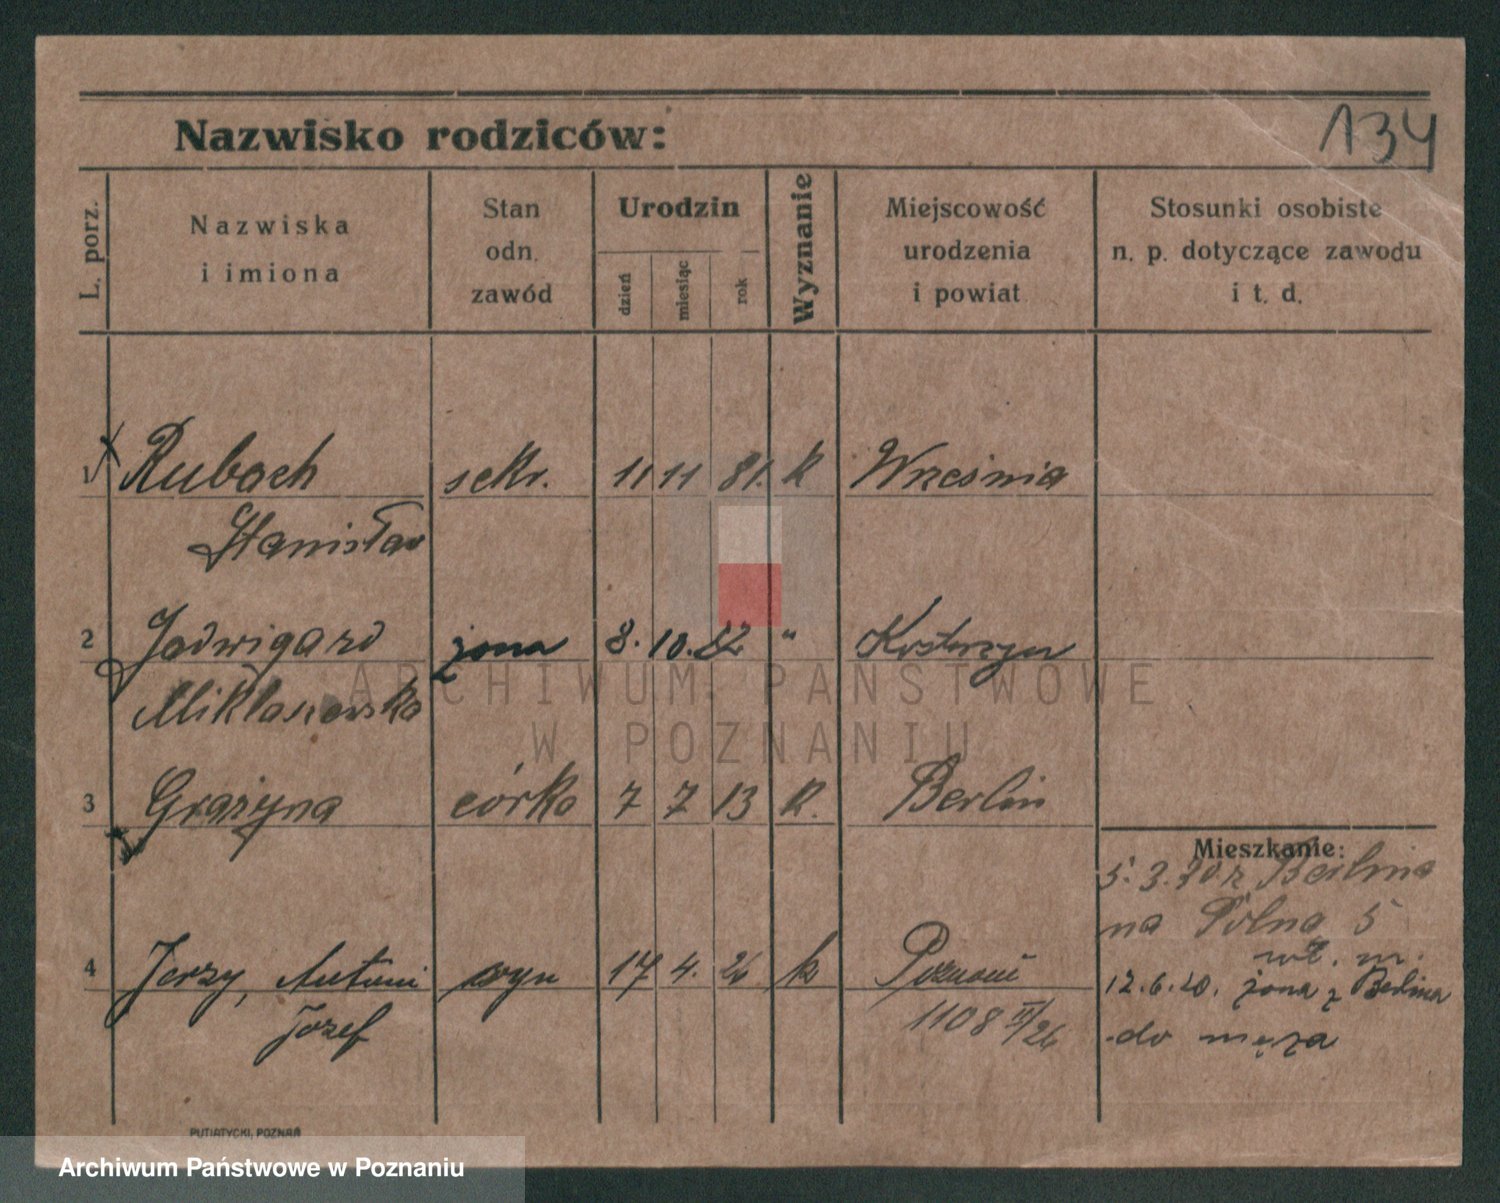 134
Nazwisko rodziców:
L. porz.
Nazwiska
i imiona
Stan
odn.
zawód
Urodzin
dzień
miesiąc
rok
Wyznanie
Miejscowość
urodzenia
i powiat
Stosunki osobiste
n. p. dotyczące zawodu
i t. d.
1 Rubach sekr. 11 11 81. k Września
Stanisław
2 Jadwiga zd żona 8. 10. 82 " Kostrzyn
Mikłaszewska
3 Grażyna córka 7 7 13 k. Berlin
Mieszkanie:
5. 3. 20 z Berlina
na Polna 5
wł. m.
4 Jerzy, Antoni syn 17 4. 26 k Poznań
12. 6. 20. żona z Berlina
Józef
1108 IV/26
do męża
PUTIATYCKI, POZNAŃ
ARCHIWUM PAŃSTWOWE
W POZNANIU
Archiwum Państwowe w Poznaniu